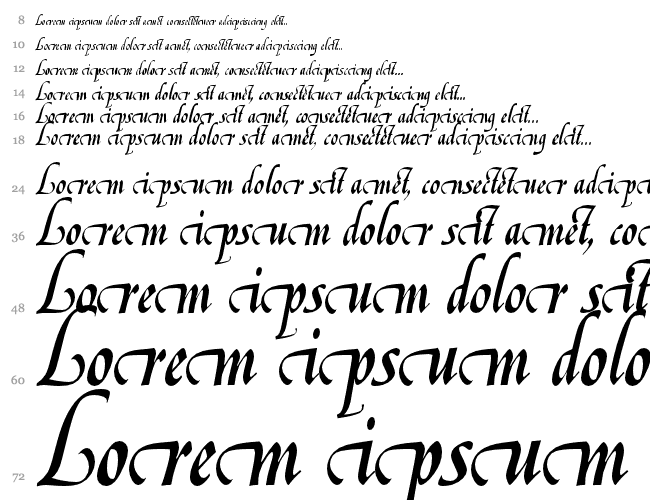 8 Lorem ipsum dolor sit amet, consectetuer adipiscing elit...
10 Lorem ipsum dolor sit amet, consectetuer adipiscing elit...
12 Lorem ipsum dolor sit amet, consectetuer adipiscing elit...
14 Lorem ipsum dolor sit amet, consectetuer adipiscing elit...
16 Lorem ipsum dolor sit amet, consectetuer adipiscing elit...
18 Lorem ipsum dolor sit amet, consectetuer adipiscing elit...
24 Lorem ipsum dolor sit amet, consectetuer adipi
36 Lorem ipsum dolor sit amet, co
48 Lorem ipsum dolor sit
60 Lorem ipsum dolo
72 Lorem ipsum